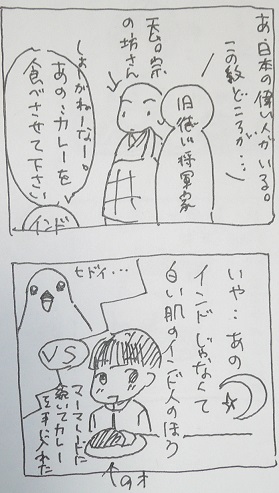 あ、日本の偉い人がいる。
この紋どころが…
旧徳川将軍家
天〇宗
の坊さん
しょがねーなー。
あの、カレーを
食べさせて下さい
インド
いや…あの
インドじゃなくて
白い肌のインド人のほう
ヒドイ…
VS
マーマレードに
続いてカレー